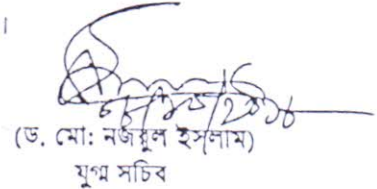 (ড. মো: নজমুল ইসলাম)
যুগ্ম সচিব